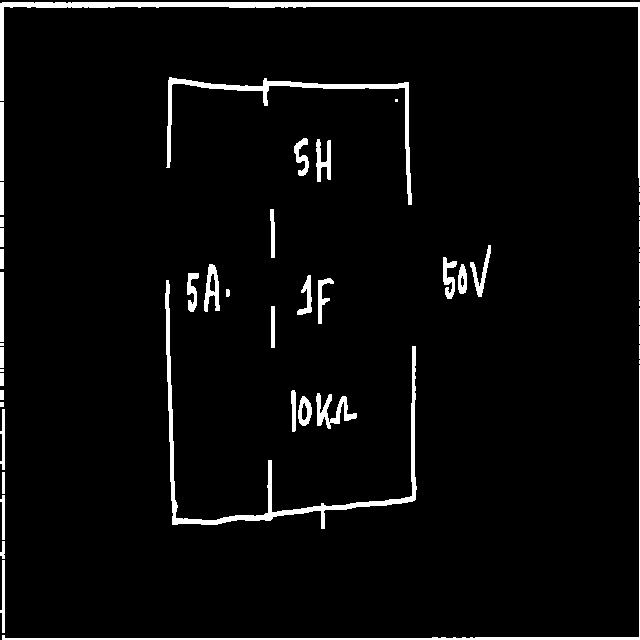 5H
5A. 1F 50V
10KΩ